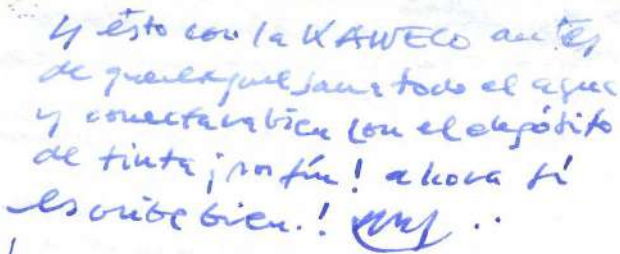 y ésto con la KAWECO antes
de que expulsara todo el agua
y conectara bien con el depósito
de tinta ¡por fín! ahora sí
escribe bien.!